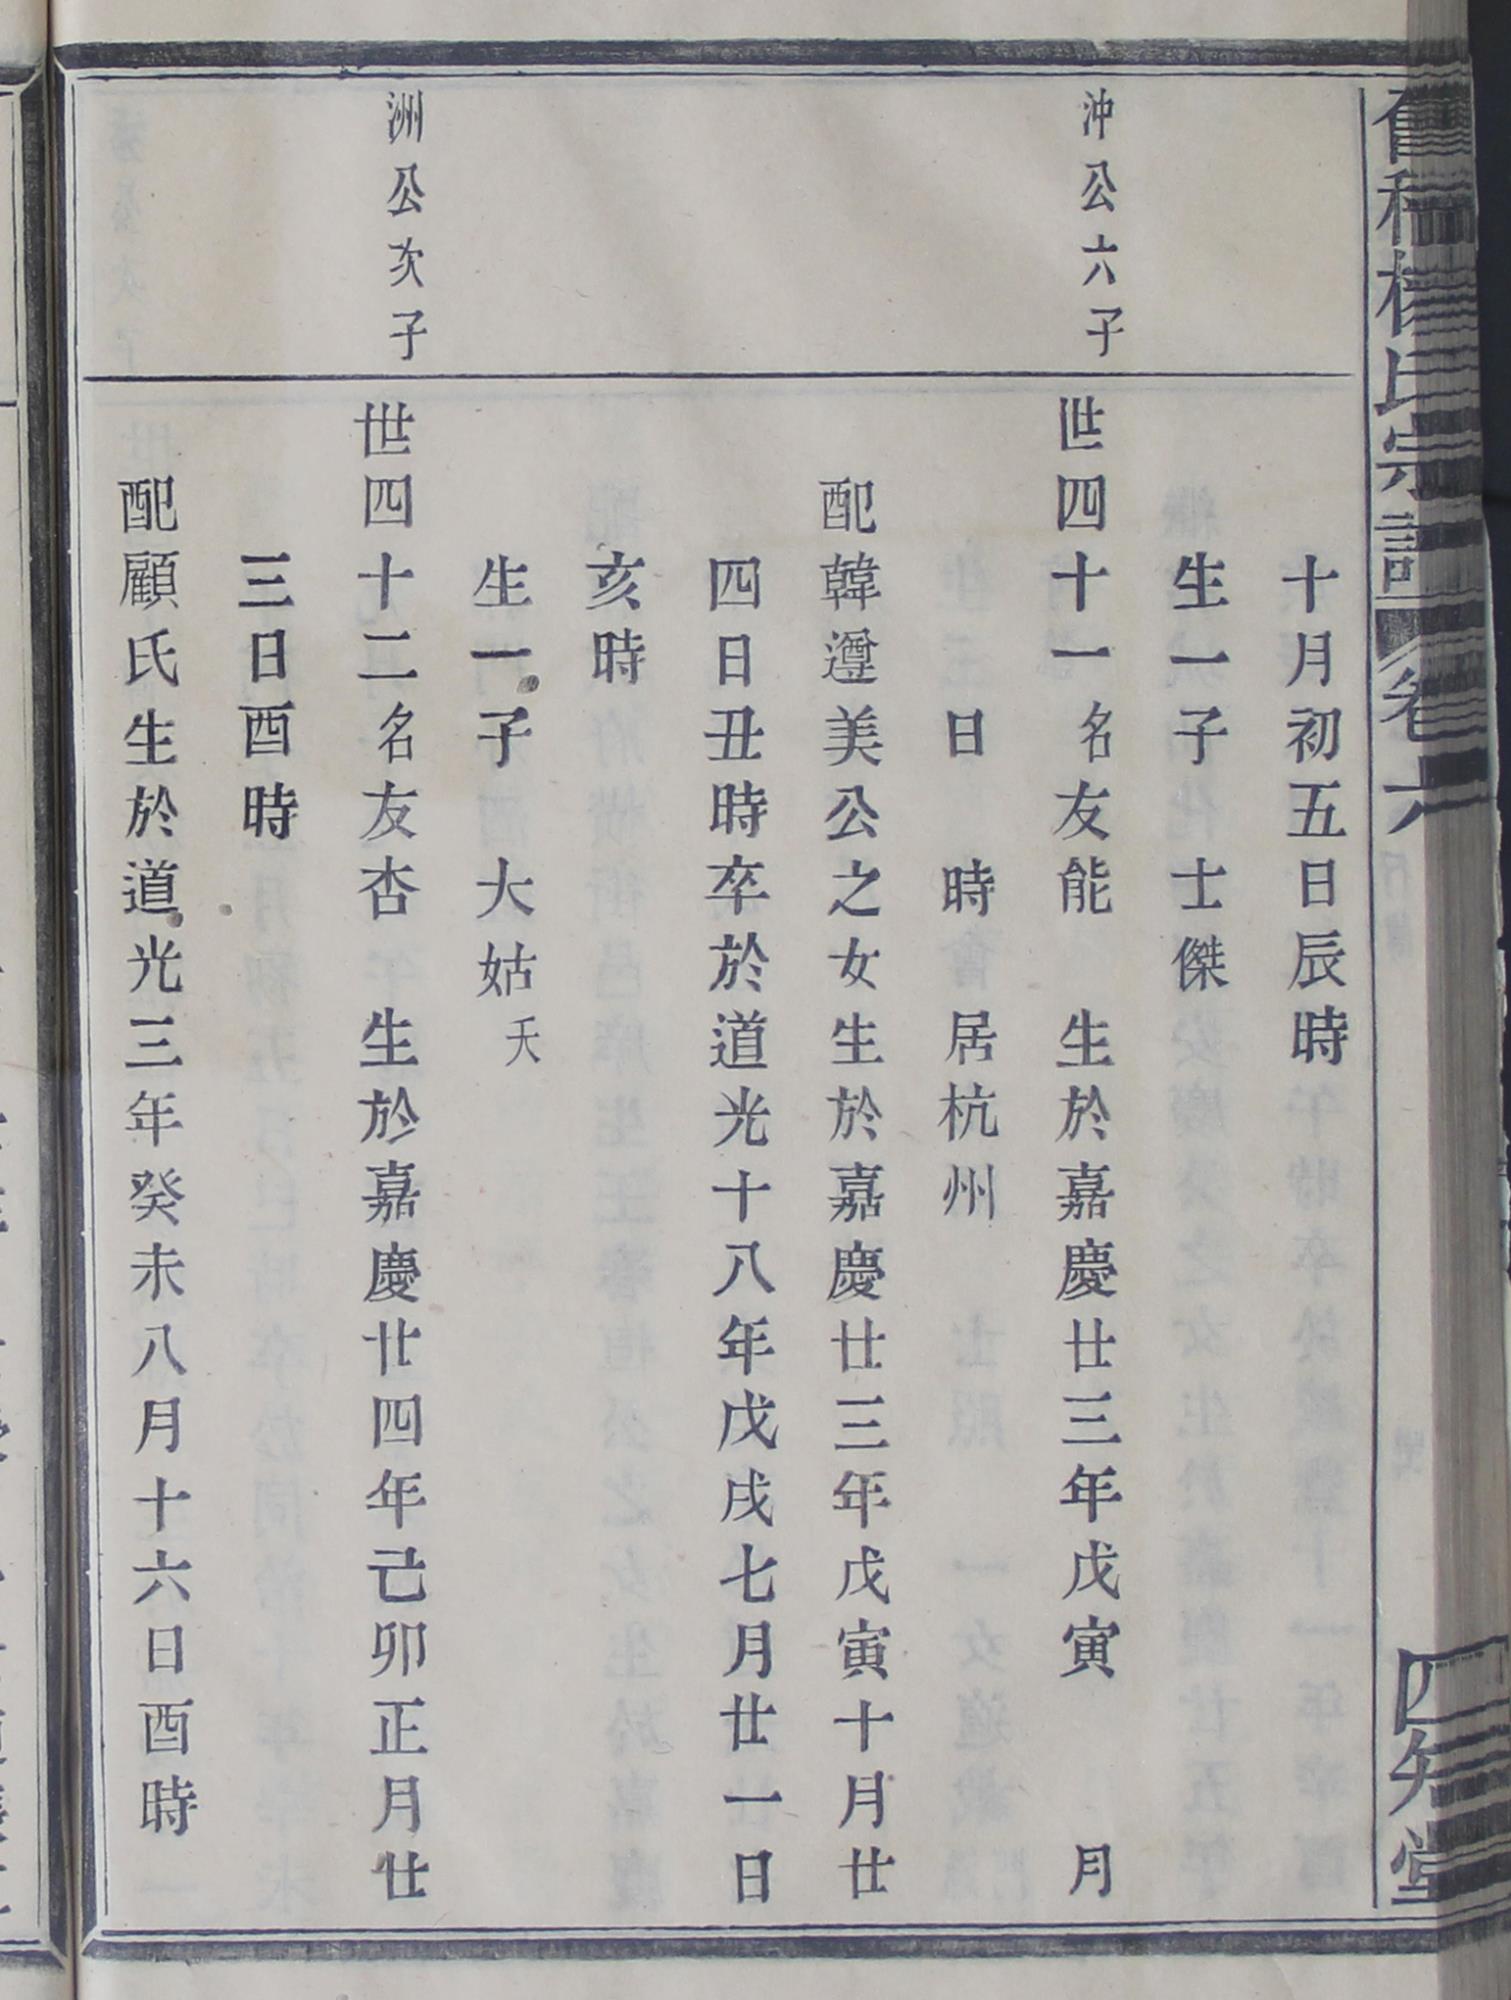 楊氏宗譜
卷六
四知堂
十月初五日辰時
生一子 士傑
沖公六子
世四十一名友能 生於嘉慶廿三年戊寅 月
日 時 居杭州
配韓遵美公之女生於嘉慶廿三年戊寅十月廿
四日丑時卒於道光十八年戊戌七月廿一日
亥時
生一子 大姑夭
洲公次子
世四十二名友杏 生於嘉慶廿四年己卯正月廿
三日酉時
配顧氏生於道光三年癸未八月十六日酉時